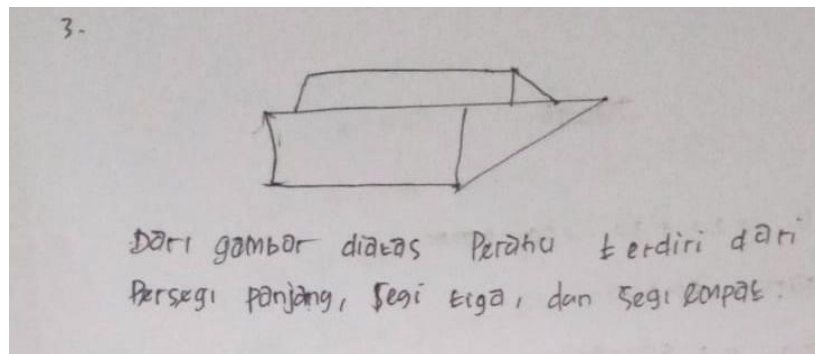 3.
Dari gambar diatas Perahu terdiri dari
Persegi panjang, segi tiga, dan segi empat.